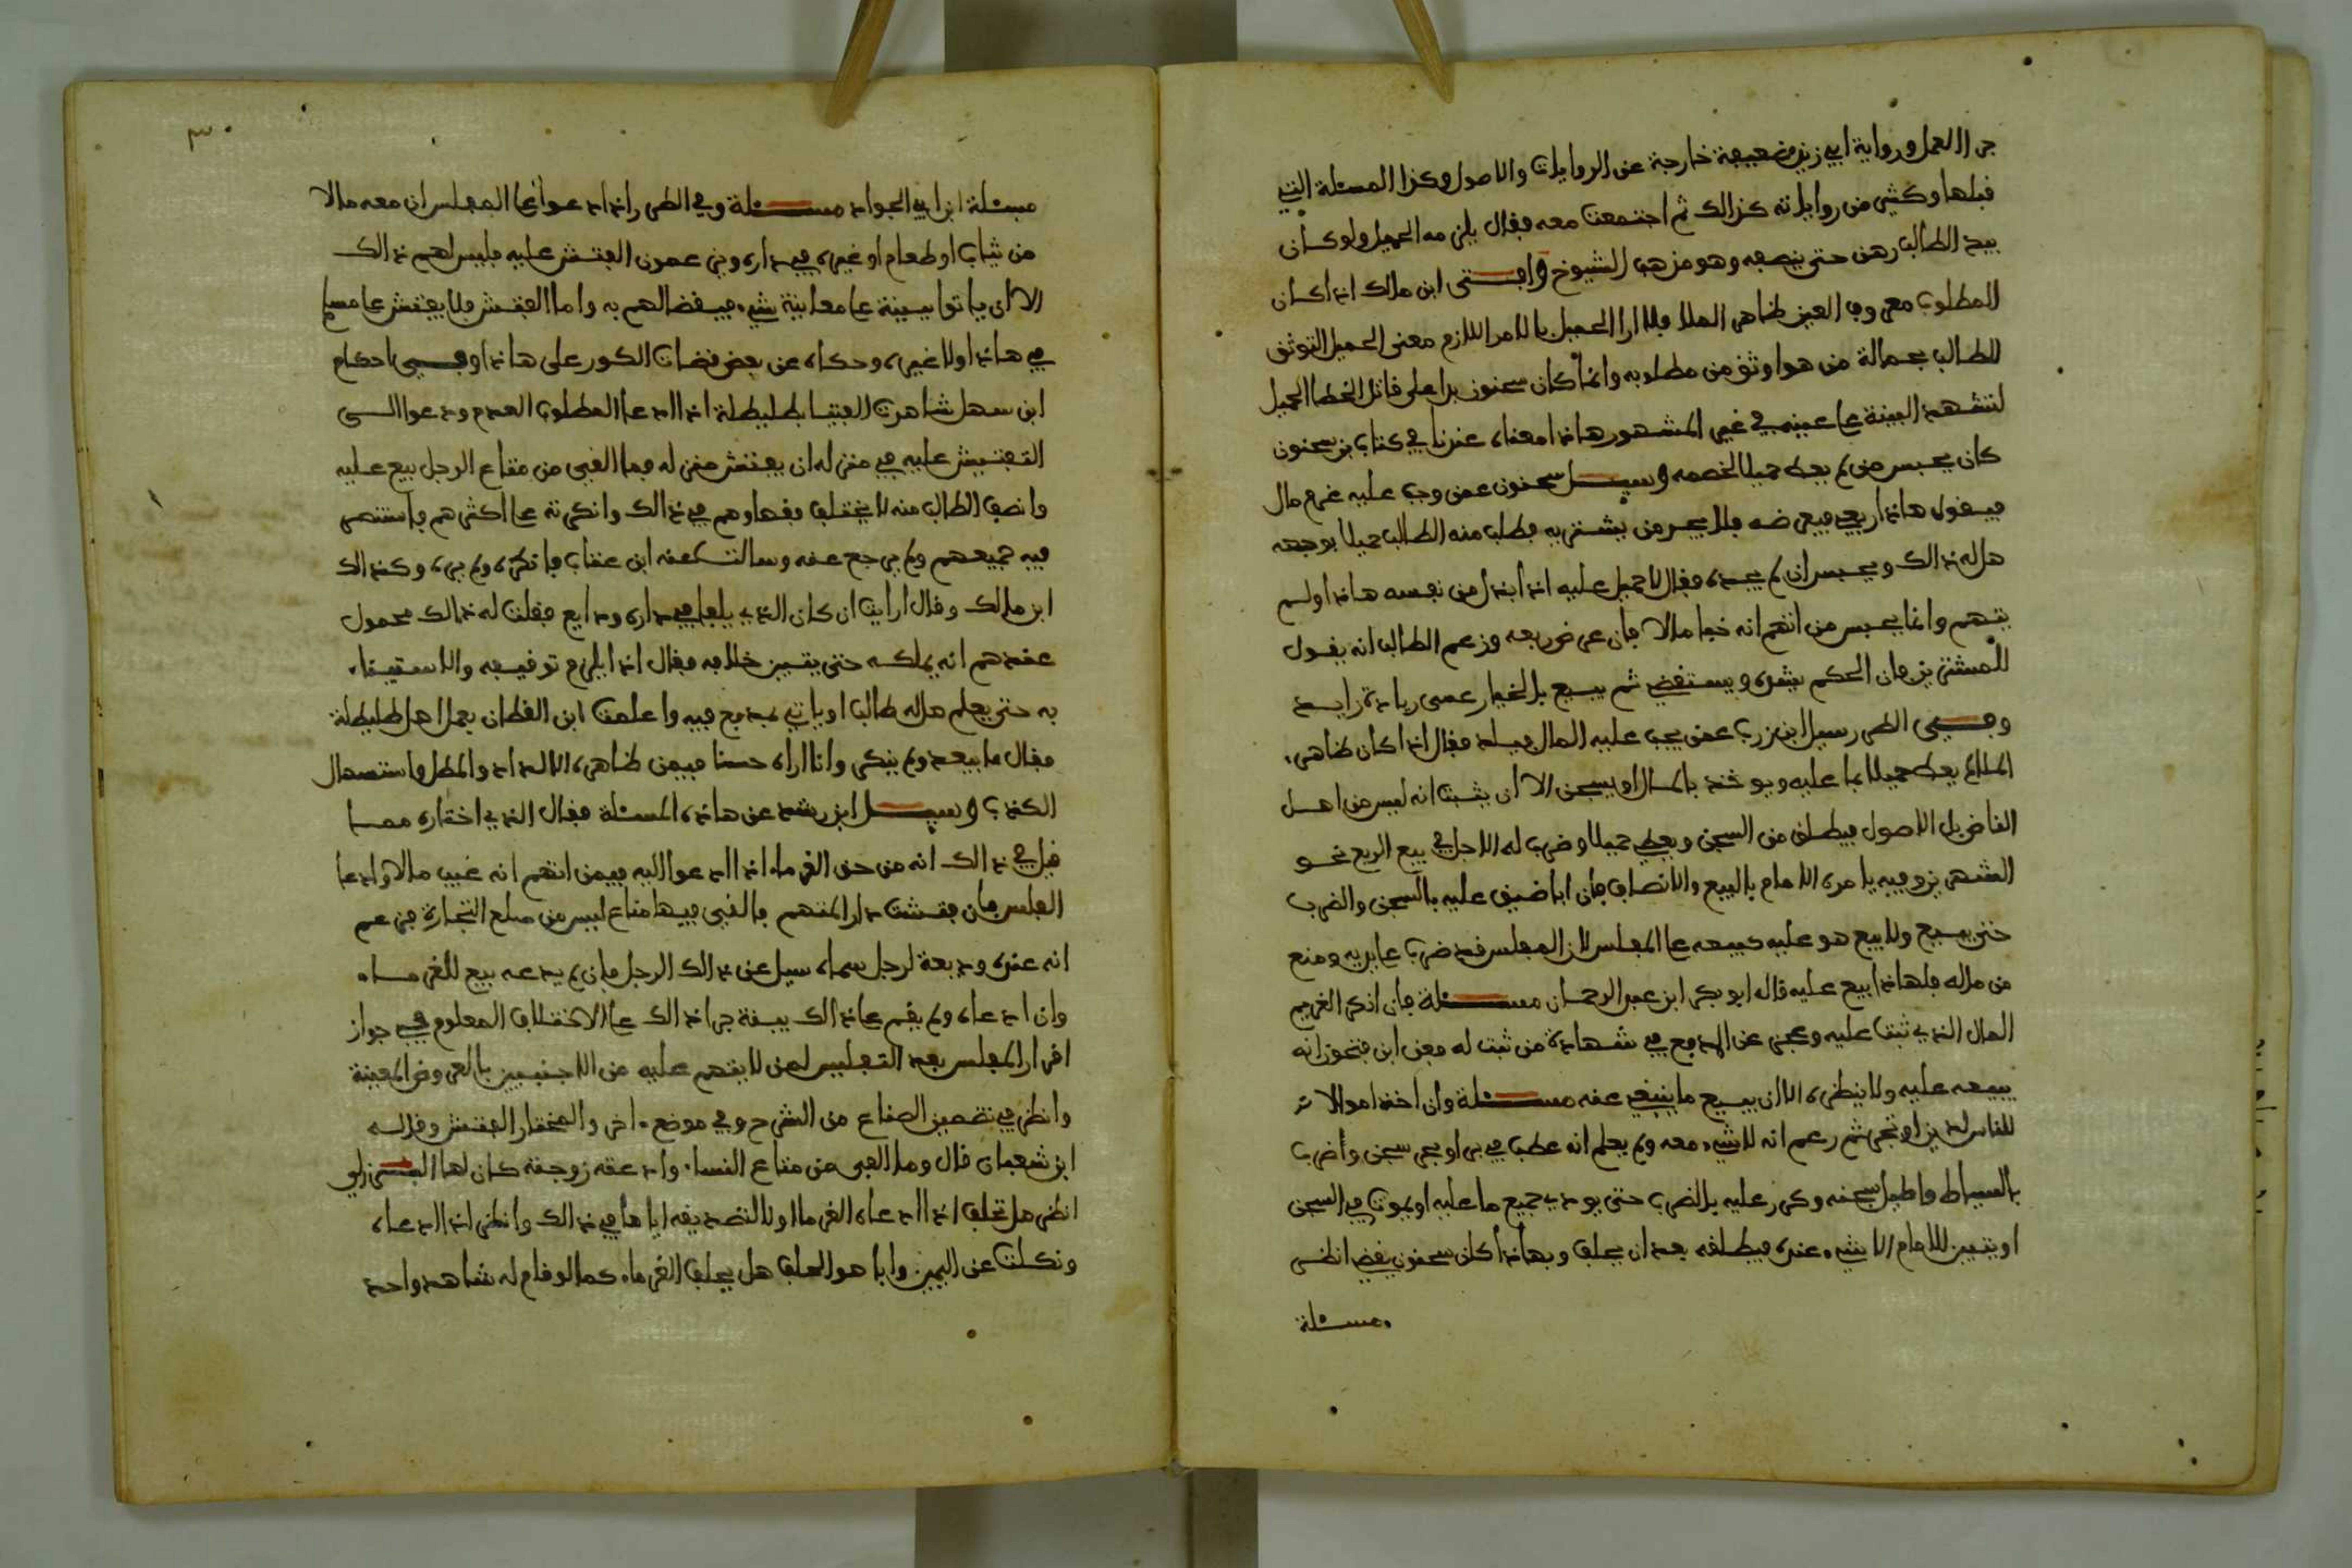 جرا العمل ورواية ابي زيد ضعيفة خارجة عن الروايات والاصول وكذا المسئلة التي
قبلها وكثير من رواياته كذالك ثم اجتمعت معه فقال يلزمه الحميل ولو كان
بيد الطالب رهن حتى ينصفه وهو مذهب الشيوخ وافتى ابن مالك اذا كان
المطلوب معروف العين ظاهر الملا فلا ارا الحميل بالامر اللازم معنى الحميل التوثق
للطالب بحمالة من هو اوثق من مطلوبه وانما كان سحنون يرا على قاتل الخطا الحميل
لتشهد البينة على عينه في غير المشهور هاذا معناه عندنا في كتاب بن سحنون
كان يحبس من لم يعط حميلا لخصمه وسيل سحنون عمن وجب عليه غرم مال
فيقول هاذا ربعي فيعرضه فلا يجد من يشتريه فطلب منه الطالب حميلا بوجهه
هل له ذالك ويحبس ان لم يجده فقال لا حميل عليه اذا ابذل من نفسه هاذا ولم
يتهم وانما يحبس من اتهم انه خبا مالا فان عرض ربعه وزعم الطالب انه يقول
للمشترين فان الحكم يشده ويستقضي ثم يبيع بالخيار عسى زيادة زايد
وفي الطرر سيل ابن زرب عمن يجب عليه المال فيلد فقال اذا كان ظاهر
الملاء يعط حميلا بما عليه ويوخذ بالمال او يسجن الا ان يثبت انه ليس من اهل
الناض بل الاصول فيطلق من السجن ويعطي حميلا وضرب له الاجل في بيع الربع نحو
الشهرين وفيه يامره الامام بالبيع والانصاف فان ابا ضيق عليه بالسجن والضرب
حتى يبيع ولا يبيع هو عليه كبيعه على المفلس لان المفلس قد ضرب على يديه ومنع
من ماله فلهاذا بيع عليه قال ابو بكر ابن عبد الرحمان مسئلة فان انكر الغريم
المال الذي ثبت عليه وعجز عن الدفع في شهادة من ثبت له فعن ابن فتحون انه
يبيعه عليه ولا ينظره الا ان يبيع ما ينبغي عنه مسئلة وان اخذ اموالا
للناس لدين او تجر ثم زعم انه لا شيء معه ولم يعلم انه عطب في بر او بحر سجن وضرب
بالسياط واطيل سجنه وكرر عليه بالضرب حتى يودي جميع ما عليه او يموت في السجن
او يتبين للامام الا شيء عنده فيطلقه بعد ان يحلف وبهاذا كان سحنون يقضي انظر
مسئلة
٣٠
مسئلة ابن ابي الجواد مسئلة وفي الطرر اذا ادعوا على المفلس ان معه مالا
من ثياب او طعام او غيره في داره ويدعون الفتش عليه فليس لهم ذالك
الا ان ياتوا ببينة على معاينة شيء فيقضا لهم به واما الفتش فلا يفتش على مسلم
في هاذا ولا غيره وحكاه عن بعض قضات الكور على هاذا وفي احكام
ابن سهل شاهدت الفتيا بطليطلة اذا ادعا المطلوب العدم ودعوا الى
التفتيش عليه في منزله ان يفتش منزله فما الفي من متاع الرجل بيع عليه
وانصف الطالب منه لا يختلف فقهاوهم في ذالك وانكرته على اكثرهم فاستنصر
فيه جميعهم ولم يرجع عنه وسالت عنه ابن عتاب فانكره ولم يره وكذالك
ابن مالك وقال ارايت ان كان الذي يلفا في داره ودايع فقلت له ذالك محمول
عندهم انه يملكه حتى يتبين خلافه فقال اذا يلزم توقيفه والاستيناء
به حتى يعلم هل له طالب او ياتي بمدفع فيه واعلمت ابن القطان بعمل اهل طليطلة
فقال ما يبعد ولم ينكر وانا اراه حسنا فيمن ظاهره الالداد والمطل واستسهال
الكذب وسيل ابن رشد عن هاذه المسئلة فقال الذي اختاره مما
قيل في ذالك انه من حق الغرماء اذا ادعوا اليه فيمن اتهم انه غيب مالا وادعا
الفلس فان فتشت دار المتهم فالفي فيها متاع ليس من سلع التجارة فزعم
انه عنده وديعة لرجل سماه سيل عن ذالك الرجل فان لم يدعه بيع للغرماء
وان ادعاه ولم يقم على ذالك بينة جرا ذالك على الاختلاف المعلوم في جواز
اقرار المفلس بعد التفليس لمن لا يتهم عليه من الاجنبيين بالعروض المعينة
وانظر في تضمين الصناع من الشرح وفي موضع اخر والمختار الفتش وقاله
ابن شعبان قال وما الفي من متاع النساء وادعته زوجته كان لها
انظر هل تحلف اذا ادعاه الغرما او لا لتصديقه اياها في ذالك وانظر اذا ادعاه
ونكلت عن اليمين وابا هو الحلف هل يحلف الغرماء كما لو قام له شاهد واحد